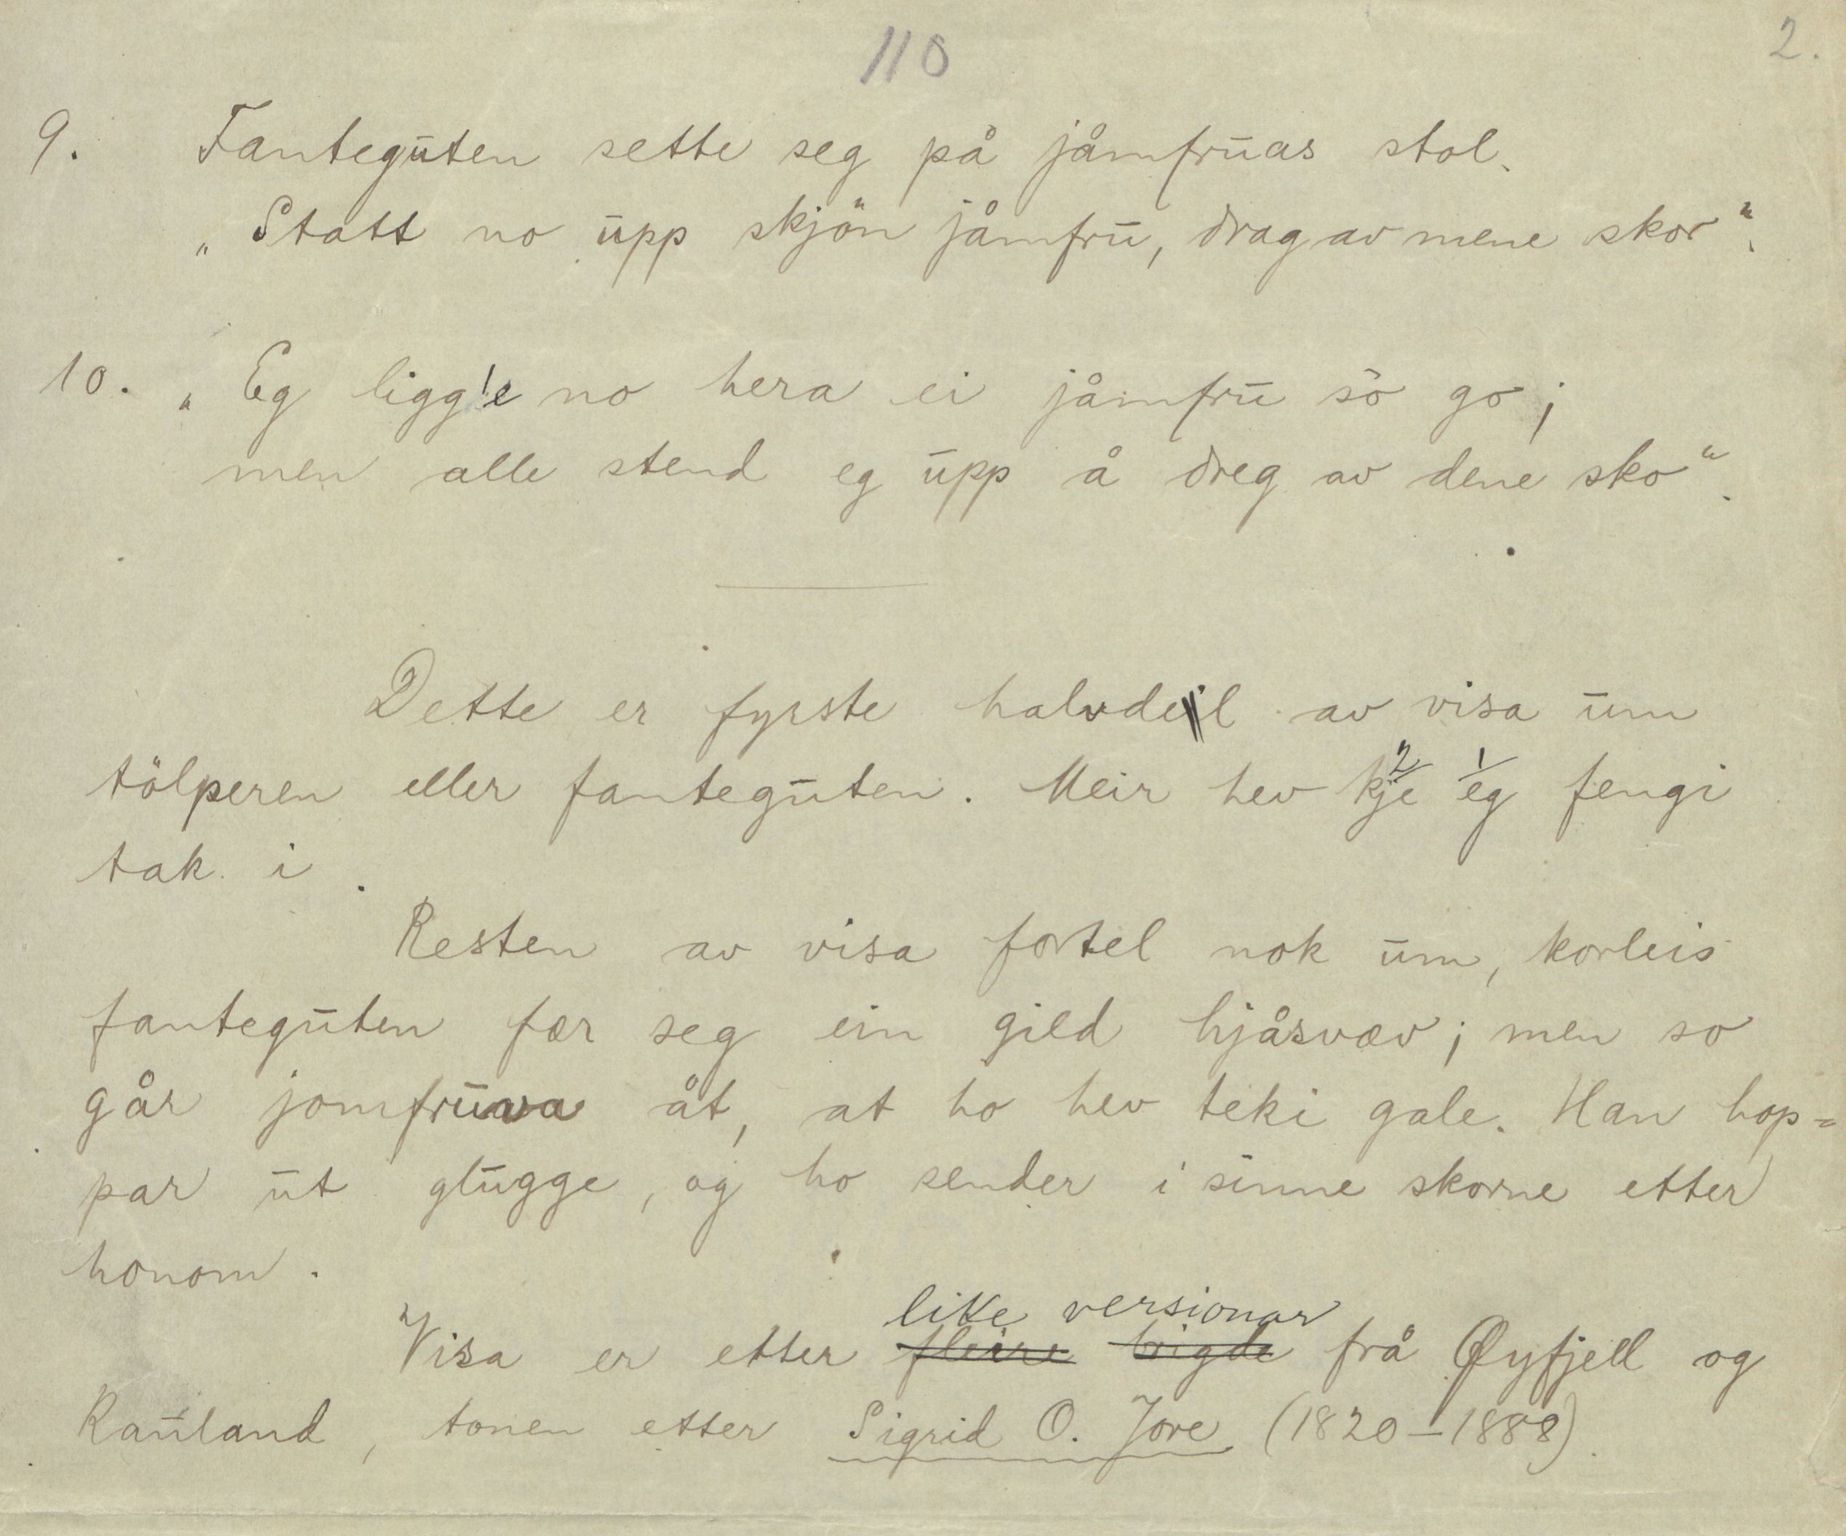 110
2.
9. Fanteguten sette seg på jåmfruas stol.
„Statt no upp skjön jåmfru, drag av mene skor“.
10. „Eg ligg'e no hera ei jåmfru so go;
men alle stend eg upp å dreg av dene sko“.
Dette er fyrste halvdel av visa um
tölperen eller fanteguten. Meir hev kje eg fengi
2 1
tak i.
Resten av visa fortel nok um, korleis
fanteguten fær seg ein gild hjåsvæv; men so
går jomfruva åt, at ho hev teki gale. Han hop=
par ut glugge, og ho sender i sinne skorne etter
honom.
like versionar
Visa er etter fleire bigde frå Øyfjell og
Rauland, tonen etter Sigrid O. Jore (1820–1888).